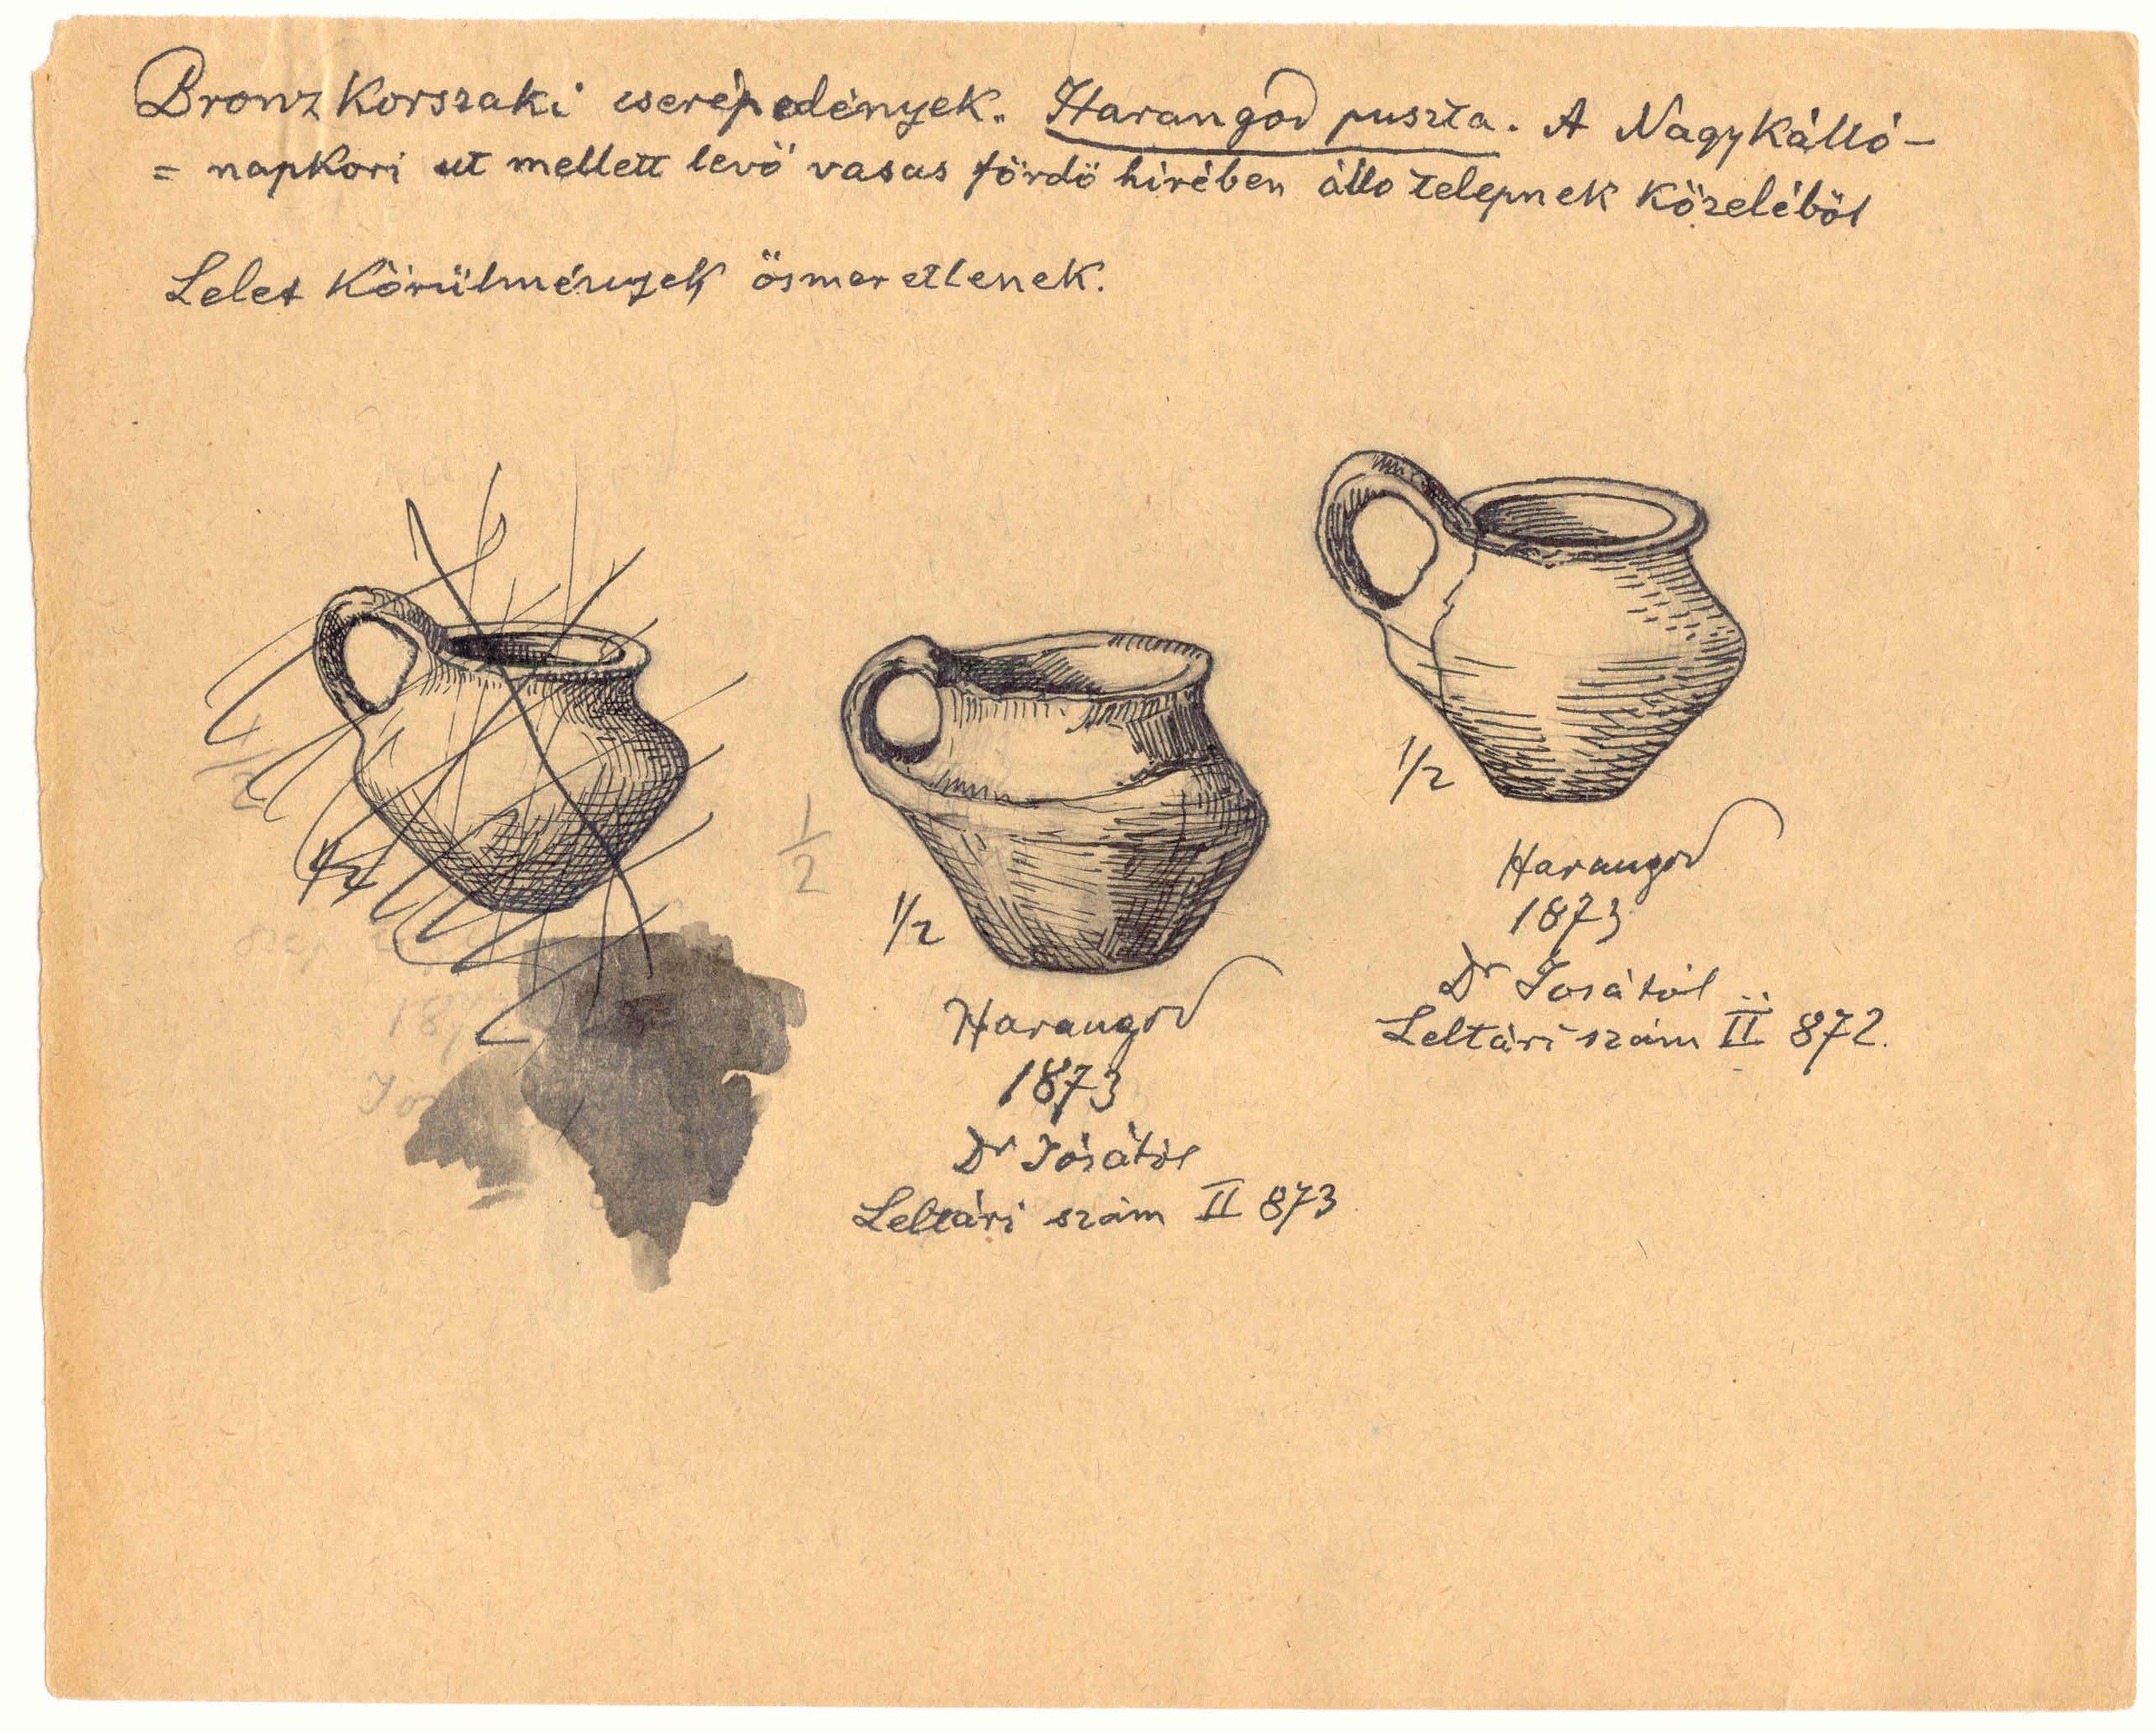 Bronzkorszaki cserép edények. Harangod puszta. A Nagykálló-
= napkori ut mellett levő vasas fördö hirében álló telepnek közeléböl
Lelet körülmények ösmeretlenek.
1/2
1/2
1/2
Harangod
1873
Dr Jósától
Leltári szám II 873
1/2
Harangod
1873
Dr Josától
Leltári szám II 872.